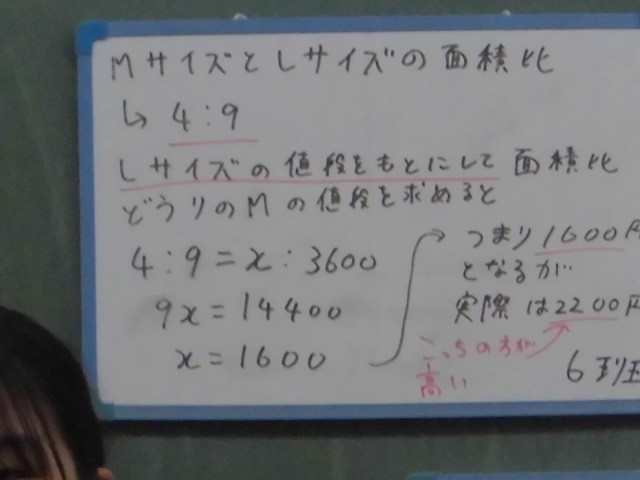 MサイズとLサイズの面積比
↳ 4:9
Lサイズの値段をもとにして面積比
どうりのMの値段を求めると
4:9=x:3600
9x=14400
x=1600
つまり1600円
となるが
実際は2200円
こっちの方が
高い
6班